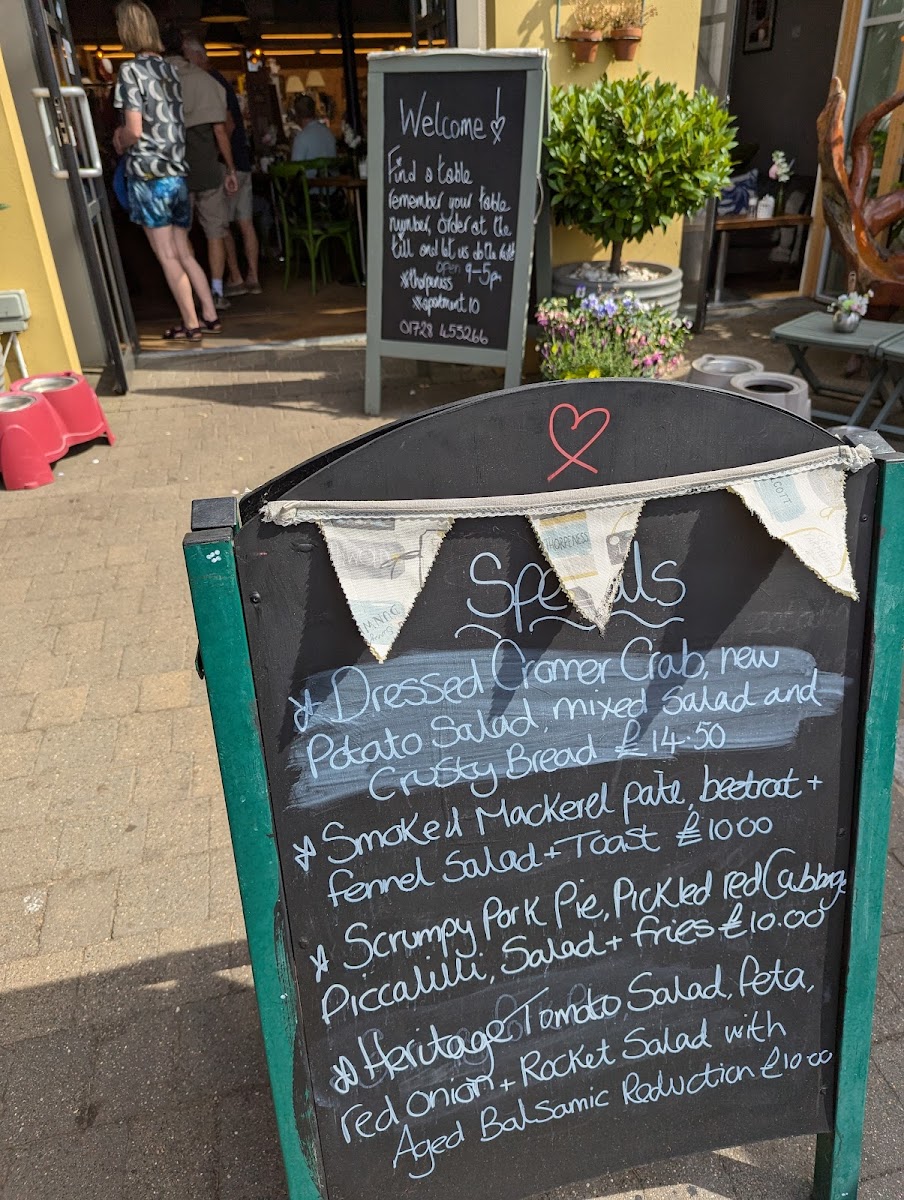 Welcome!
Find a table
remember your table
number, order at the
till and let us do the rest
open 9-5pm
*thorpeness
*apartment 10
01728 455266
THORPENESS
Specials
* Dressed Cromer Crab, new
Potato Salad, mixed Salad and
Crusty Bread £14.50
* Smoked Mackerel pate, beetroot +
fennel Salad + Toast £10.00
* Scrumpy Pork Pie, Pickled red Cabbage
Piccalilli, Salad + fries £10.00
* Heritage Tomato Salad, feta,
red onion + Rocket Salad with
Aged Balsamic Reduction £10.00